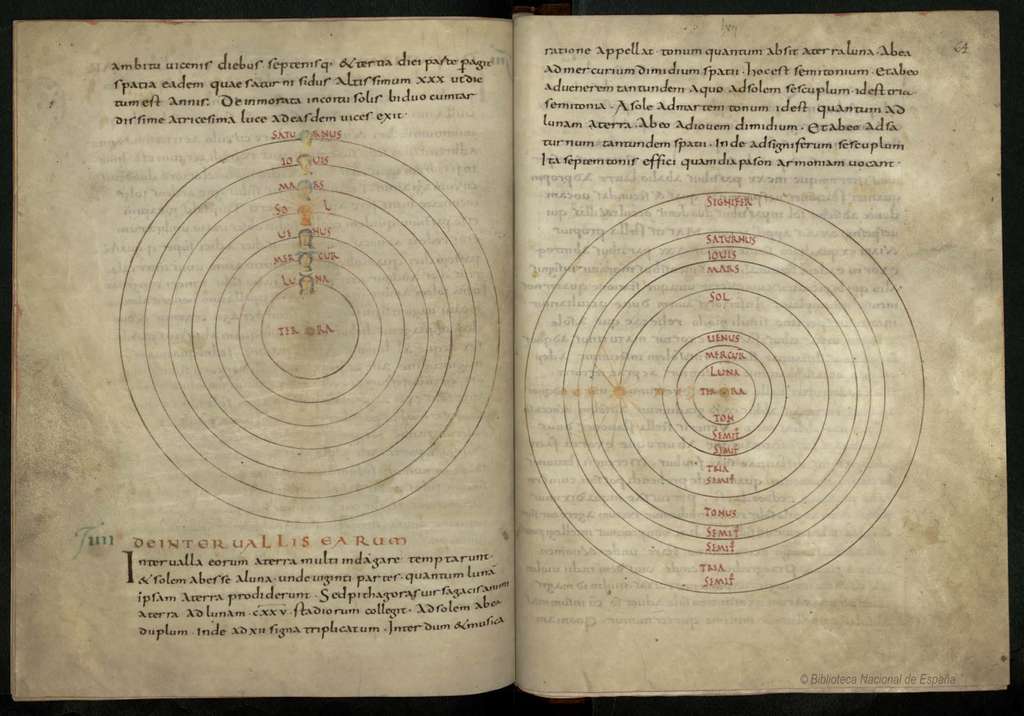 ambitu uicenis diebus septenisq· & tertia diei parte pagit
spatia eadem quae saturni sidus Altissimum xxx ut dic
tum est Annis· De inmorata in coitu solis biduo cum tar
dissime atricesima luce ad easdem uices exit·
SATURNUS
IOUIS
MARS
SOL
UENUS
MERCUR
LUNA
TERRA
IIII DE INTERUALLIS EARUM
Interualla eorum aterra multi indagare temptarunt·
& solem abesse aluna· undeuiginti partes· quantum lunā
ipsam aterra prodiderunt· Sed pithagoras uir sagacis animi
aterra ad lunam· cxxv· stadiorum collegit· Ad solem ab ea
duplum· Inde ad xii signa triplicatum· Inter dum & musica
64
ratione appellat tonum quantum absit aterra luna· Ab ea
ad mercurium dimidium spatii· hoc est semitonium· Et ab eo
ad uenerem tantundem Aquo ad solem sescuplum· id est tria
semitonia· A sole ad martem tonum id est quantum ad
lunam aterra· Ab eo ad iouem dimidium· Et ab eo ad sa
turnum tantundem spatii· Inde ad signiferum sescuplum
Ita septem tonis effici quam diapason armoniam uocant·
SIGNIFER
SATURNUS
IOUIS
MARS
SOL
UENUS
MERCUR
LUNA
TERRA
TON
SEMIT
SEMIT
TRIA
SEMIT
TONUS
SEMIT
SEMIT
TRIA
SEMIT
© Biblioteca Nacional de España